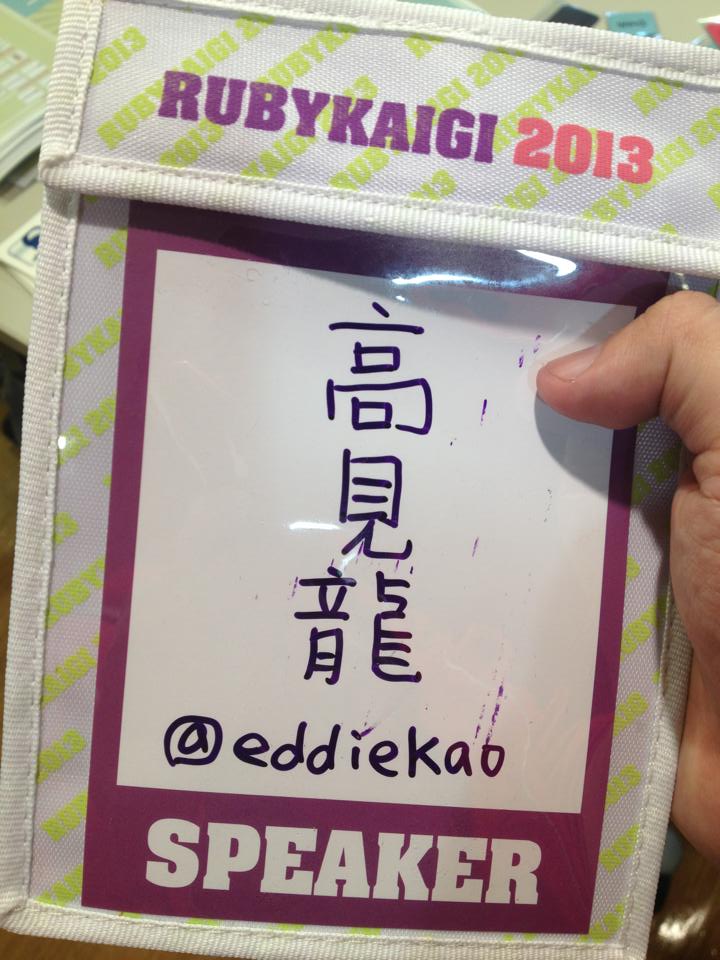 RUBYKAIGI 2013
高見龍
@eddiekao
SPEAKER